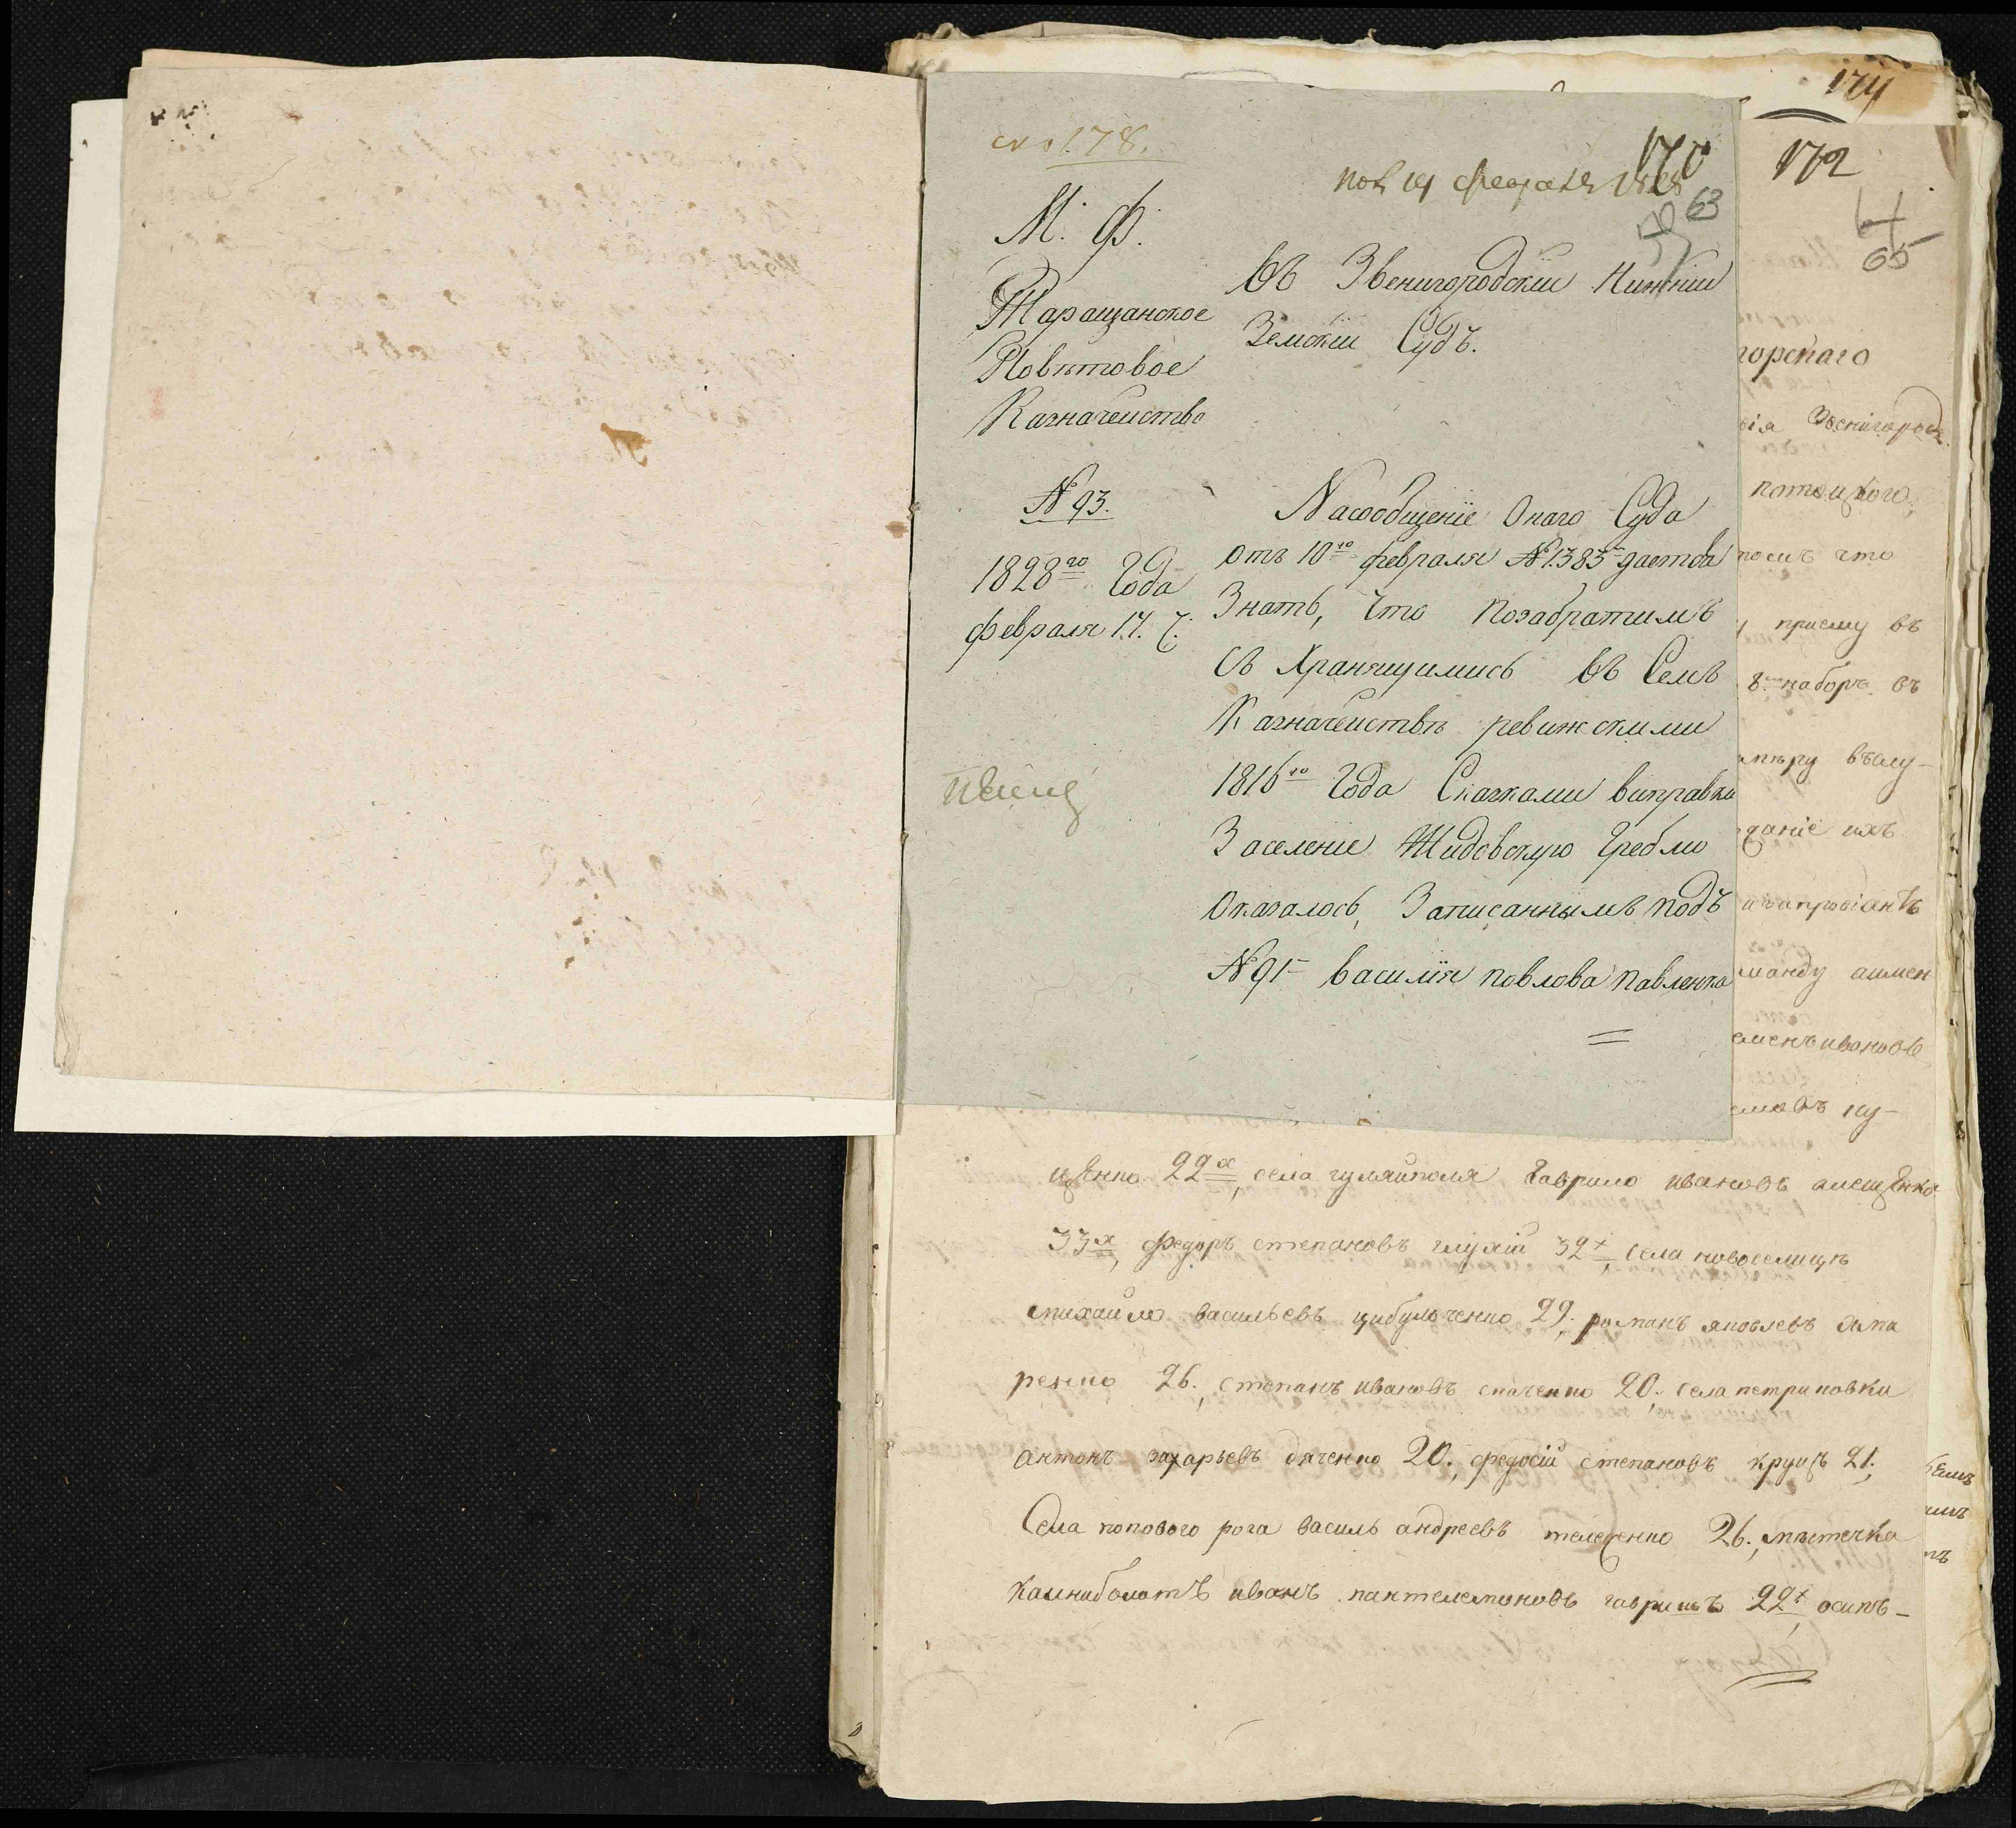 178.
170
63
М: Ф:
Таращанское
Повѣтовое
Казначейство
№ 93.
1828го Года
февраля 17. Ч.
Въ Звенигородскій Нижній
Земскій Судъ.
На сообщеніе Онаго Суда
отъ 10го февраля № 1383 дается
Знать, что по забратимъ
Съ Хранящимись Въ Семъ
Казначействѣ ревижскими
1816го Года Сказками виправки
За селеніе Жидовскую Греблю
Оказалось, Записаннымъ подъ
№ 91 василія павлова павленка
174
172
65
горскаго
вія Звенигород
потоцкого,
что
пріему въ
наборъ въ
даніе ихъ
провіантъ
манду аимен
ивановъ
цѣнко 22х, села гуляйполя Гаврило ивановъ алещенко
33х, федоръ степановъ глухій 32х, села новоселицѣ
михайло васильевъ цибульченко 29. романъ яковлевъ
ренко 26., степанъ ивановъ 20. села петриковки
антонъ захарьевъ дяченко 20., федосій степановъ круць 21.,
Села попового рога василь андреевъ телеценко 26., мѣстечка
калниболотъ иванъ пантелемоновъ гавришъ 22х, осипъ-